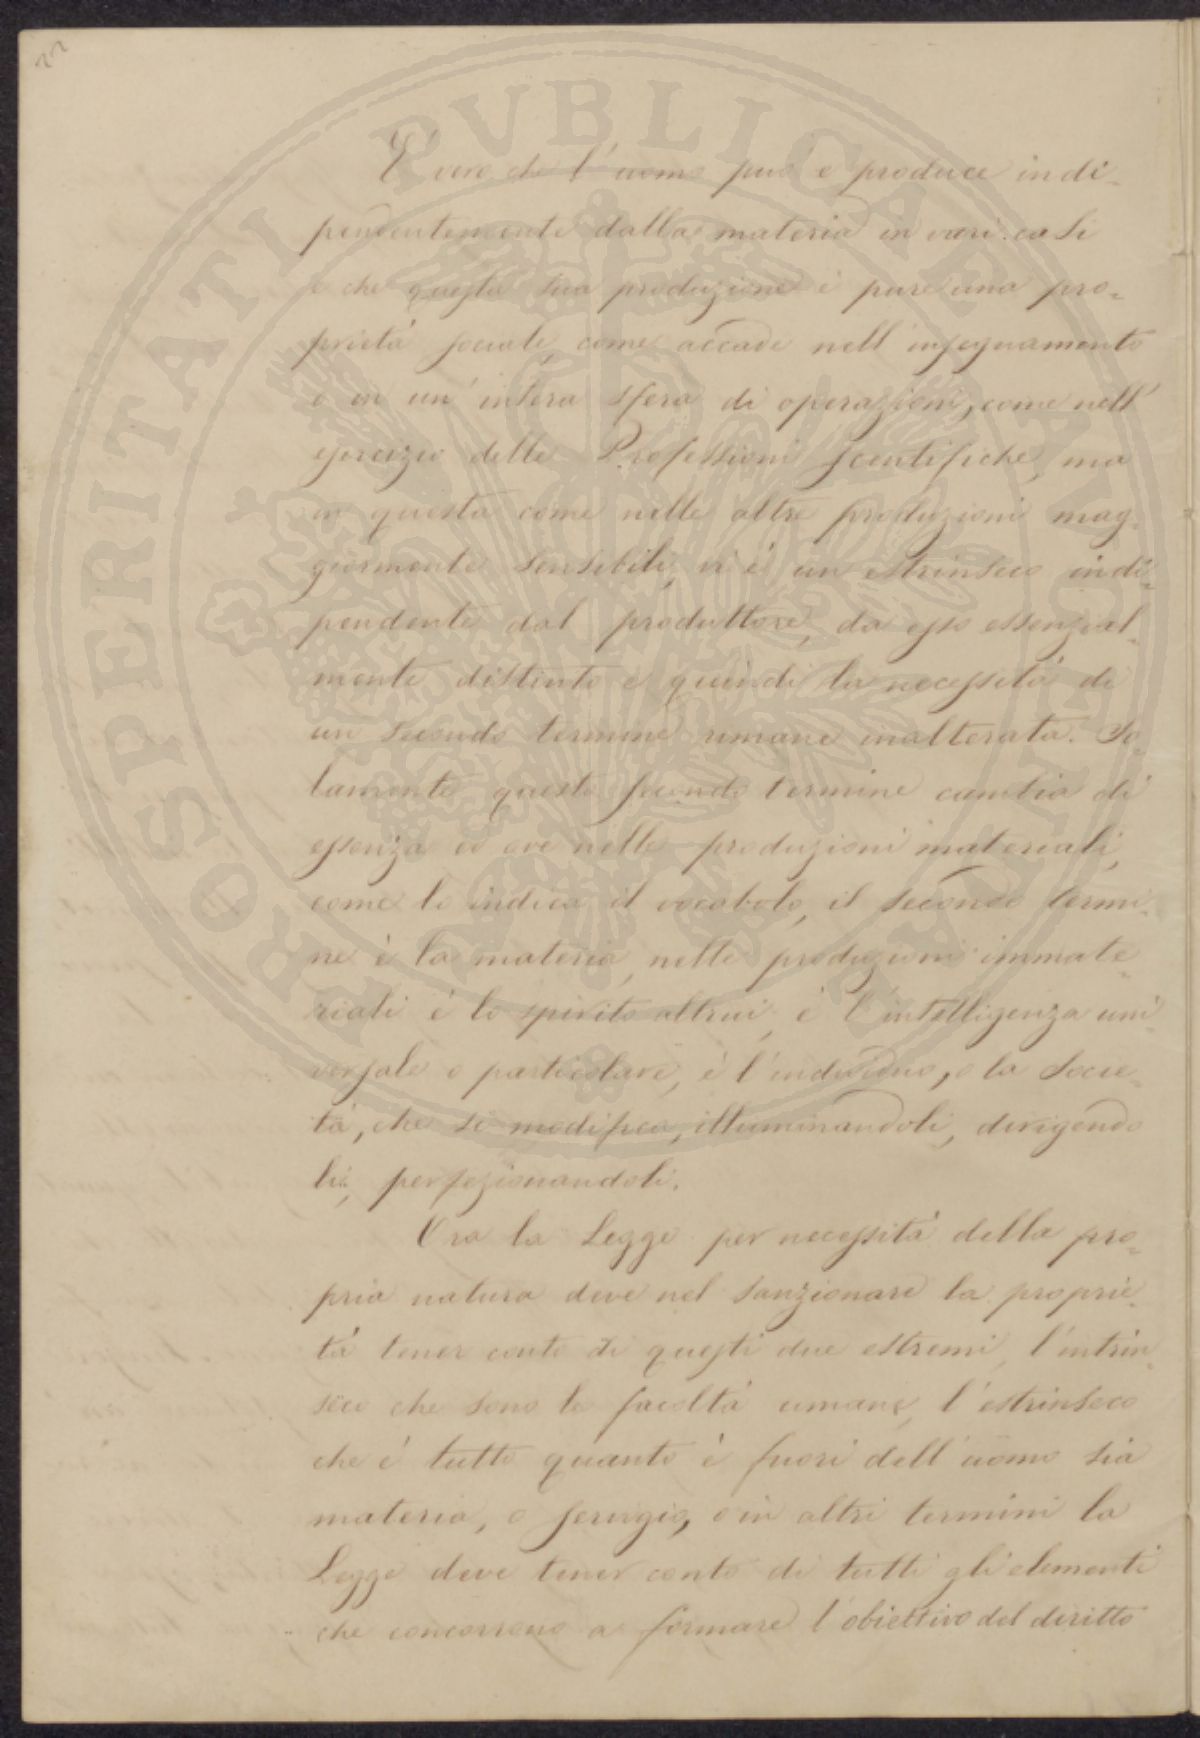 22
PROSPERITATI PVBLICAE AVGENDAE
E' vero che l'uomo può e produce indi-
pendentemente dalla materia in varî casi
e che questa sua produzione è pure una pro-
prietà sociale, come accade nell'insegnamento
o in un'intera sfera di operazioni, come nell'
esercizio delle Professioni scentifiche, ma
in questa come nelle altre produzioni mag-
giormente sensibili, vi è un estrinseco indi-
pendente dal produttore, da esso essenzial-
mente distinto e quindi la necessità di
un secondo termine rimane inalterata. So-
lamente questo secondo termine cambia di
essenza ed ove nelle produzioni materiali,
come lo indica il vocabolo, il secondo termi-
ne è la materia, nelle produzioni immate-
riali è lo spirito altrui, è l'intelligenza uni-
versale o particolare, è l'individuo, o la Socie-
tà, che si modifica, illuminandoli, dirigendo
li, perfezionandoli.
Ora la Legge per necessità della pro-
pria natura deve nel sanzionare la proprie-
tà tener conto di questi due estremi, l'intrin-
seco che sono le facoltà umane, l'estrinseco
che è tutto quanto è fuori dell'uomo sia
materia, o servigio, o in altri termini la
Legge deve tener conto di tutti gli elementi
che concorrono a formare l'obiettivo del diritto